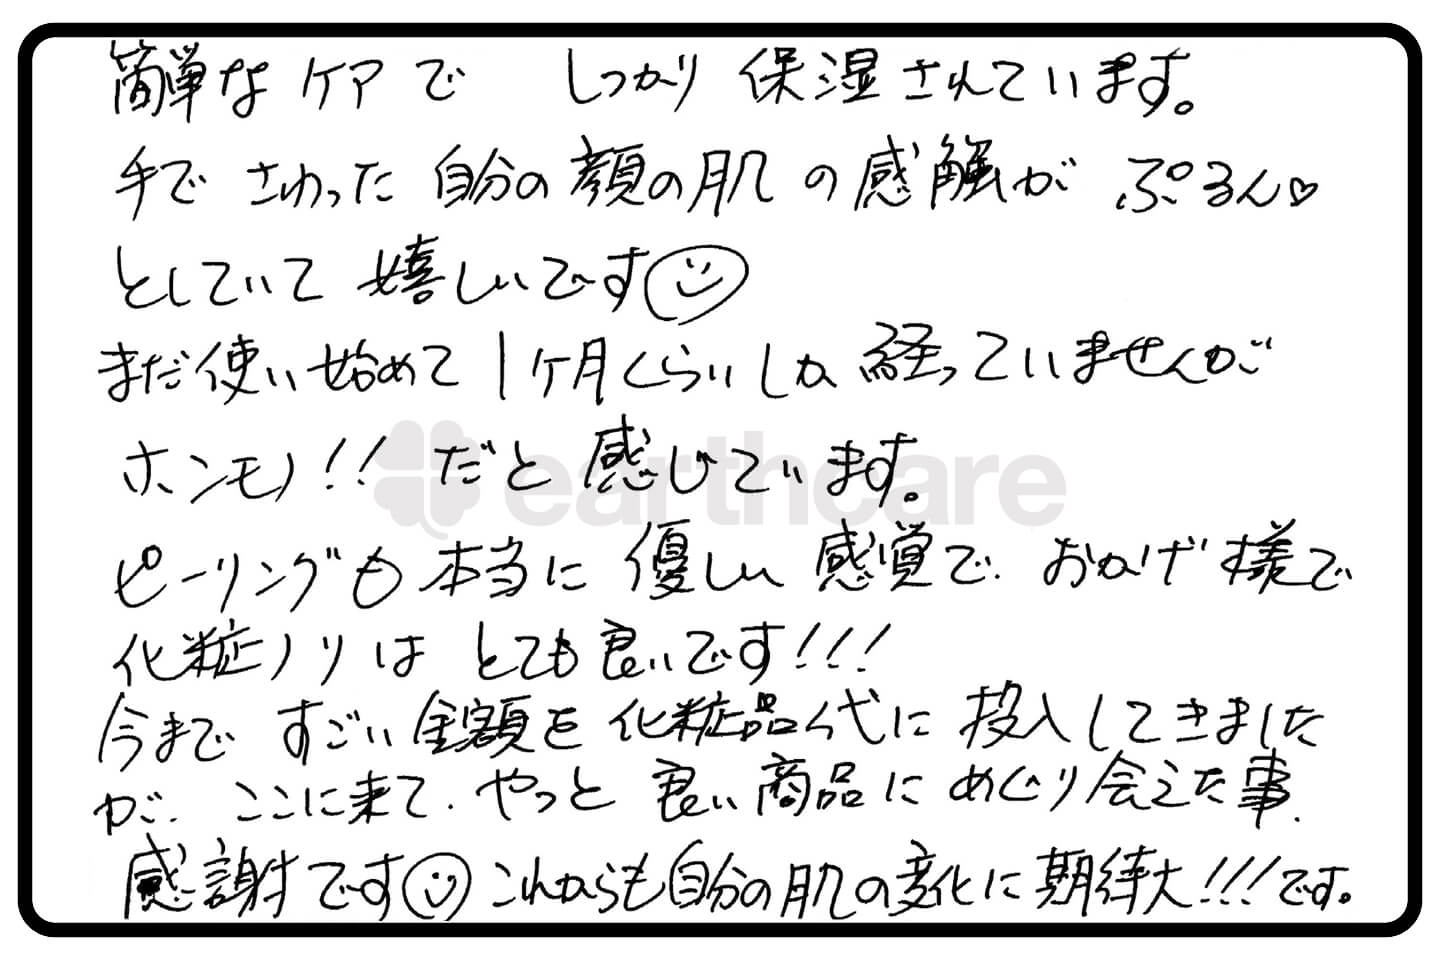 簡単なケアで しっかり 保湿されています。
手で さわった 自分の顔の肌の感触が ぷるん♡
としていて 嬉しいです☺
まだ使い始めて 1ヶ月くらいしか 経っていませんが
ホンモノ!! だと 感じています。
earthcare
ピーリングも 本当に 優しい 感覚で、おかげ様で
化粧ノリは とても良いです!!!
今まで すごい金額を 化粧品代に 投入してきました
が、ここに来て、やっと 良い商品に めぐり会えた事、
感謝です☺これからも自分の肌の変化に期待大!!!です。